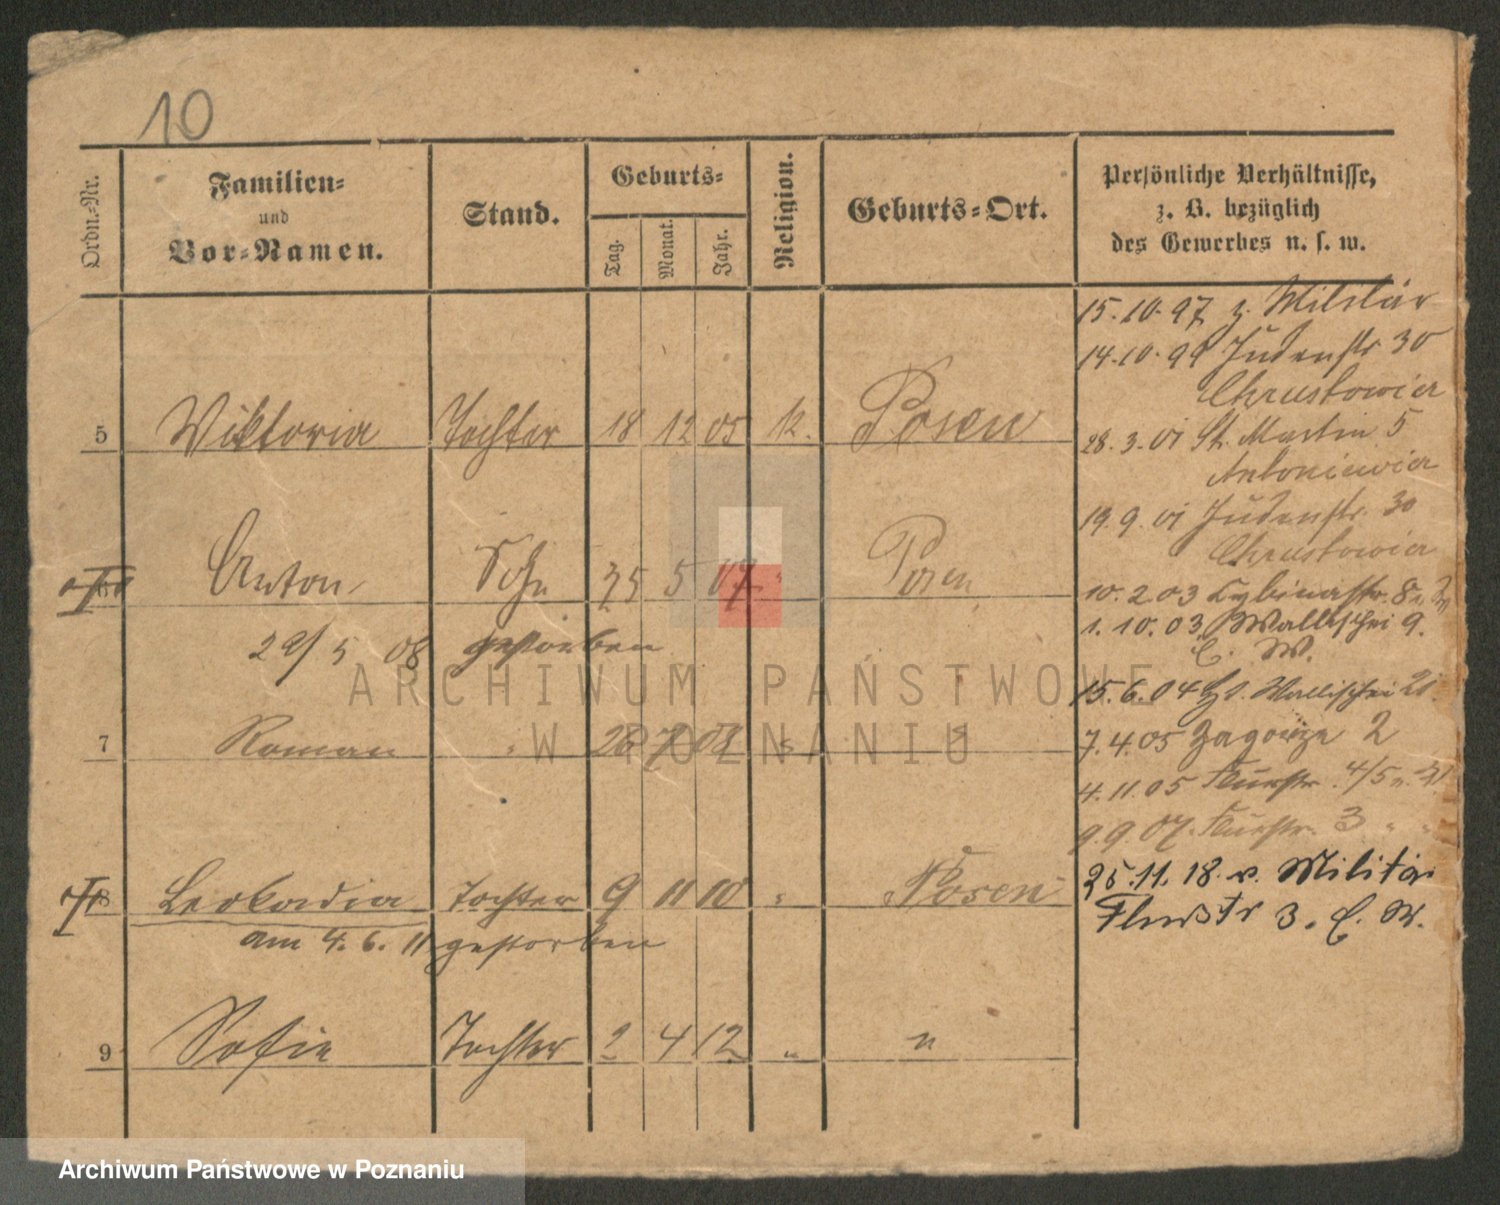 10
Ordn.-Nr.
Familien-
und
Vor-Namen.
Stand.
Geburts-
Tag.
Monat.
Jahr.
Religion.
Geburts-Ort.
Persönliche Verhältnisse,
z. B. bezüglich
des Gewerbes u. s. w.
15.10.97 z. Militär
14.10.99 Judenstr 30
Chrustowicz
5 Viktoria Tochter 18 12 05 k. Posen
28.3.01 St. Martin 5
Antoniewicz
19.9.01 Judenstr. 30
Chrustowicz
6 Anton Sohn 25 5 07 " Posen
10.2.03 Cybinastr. 8
1.10.03 Wallischei 9.
E. W.
29/5 08 gestorben
15.6.04 Wallischei
7 Roman " 26 7 08 " "
7.4.05 Zagorze 2
4.11.05 Flurstr. 4/5
9.9.07. Flurstr. 3 " "
25.11.18. v. Militär
8 Leokadia Tochter 9 11 10 " Posen
Flurstr 3. E. W.
am 4.6.11 gestorben
9 Sofie Tochter 2 4 12 " "
ARCHIWUM PAŃSTWOWE
W POZNANIU
Archiwum Państwowe w Poznaniu